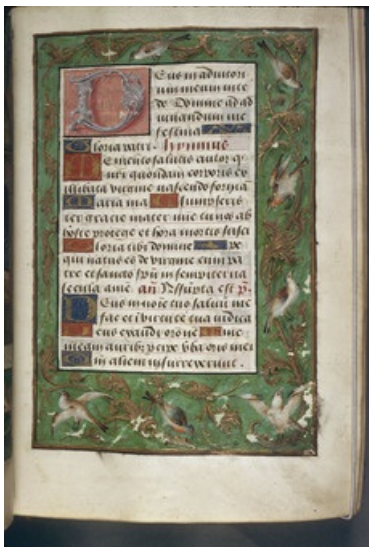 Deus in adiutori
um meum inte
de Domine ad ad
iuuandum me
festina
Gloria patri. Hymnus
Memento salutis auctor q
nri quondam corporis ex
illibata virgine nascendo formā
Maria ma Tu nos
ter gratie mater mie tu nos ab
hoste protege et hora mortis susci
Gloria tibi domine
qui natus es de virgine cum pa
tre et sancto spū in sempiterna
secula amē. an Assūpta est p.
Deus in noīe tuo saluū me
fac et in virtute tua iudica
Deus exaudi orōne
meam auribꝫ percipe vba oris mei
alieni insurrexerunt